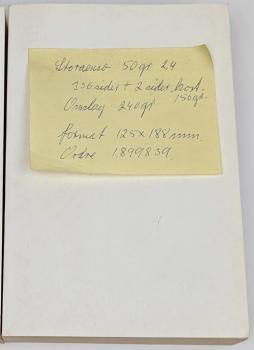 Storaenso 50gr 2,4
336 sider + 2 sider kort.
150gr.
Omslag 240gr
format 125x188mm.
Ordre 1899839.